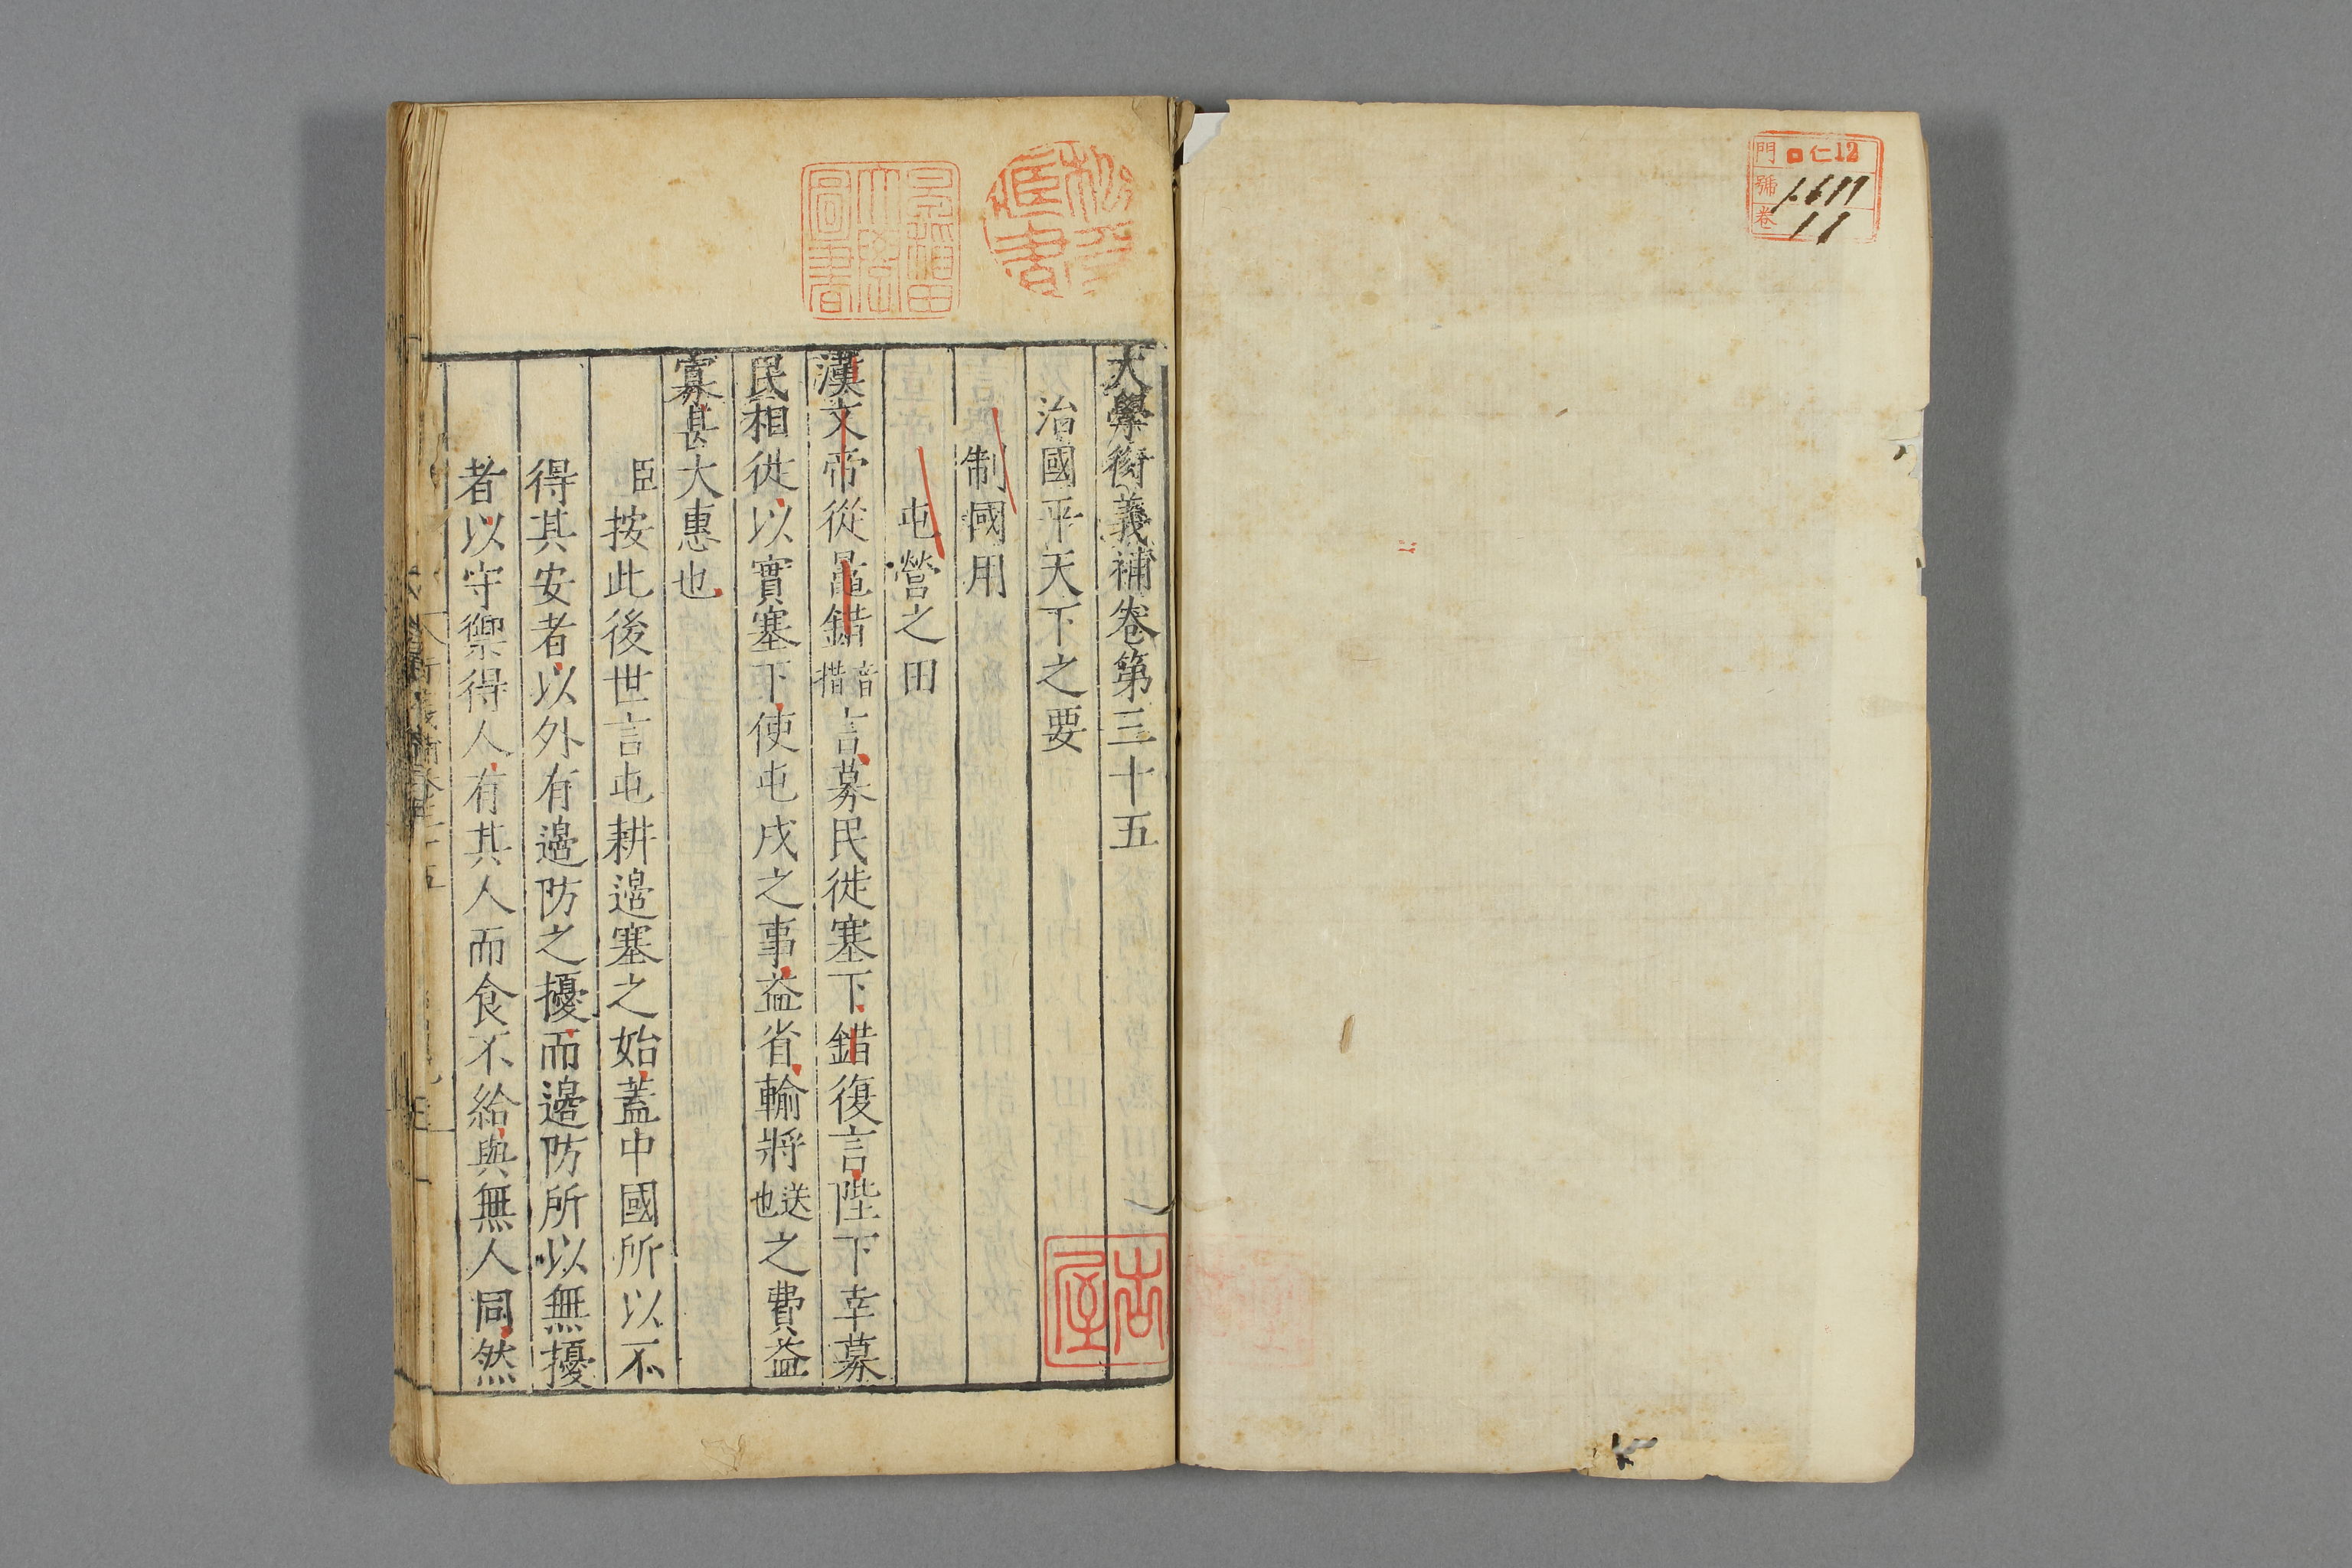 門 ロ 仁12
號 1617
卷 11
早稲田大學圖書
大學衍義補卷第三十五
治國平天下之要
制國用
屯營之田
漢文帝從鼂錯音措言募民徙塞下錯復言陛下幸募
民相徙以實塞下使屯戍之事益省輸將送也之費益
寡甚大惠也
臣按此後世言屯耕邊塞之始蓋中國所以不
得其安者以外有邊防之擾而邊防所以無擾
者以守禦得人有其人而食不給與無人同然